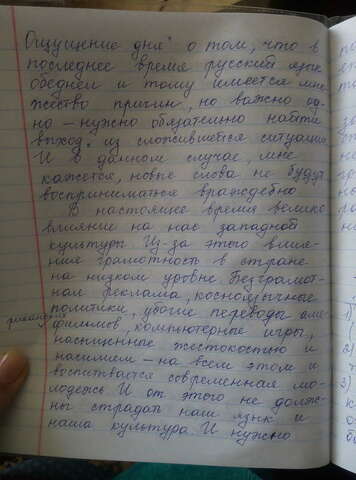 Ощущение дня" о том, что в
последнее время русский язык
обеднел и тому имеется мно-
жество причин, но важно од-
но - нужно обязательно найти
выход из сложившейся ситуации
И в данном случае, мне
кажется, новые слова не будут
восприниматься враждебно
В настоящее время велико
влияние на нас западной
культуры. Из-за этого влия-
ние грамотность в стране
на низком уровне. Безграмот-
ная реклама, косноязычные
политики, убогие переводы аме-
риканских
фильмов, компьютерные игры,
насыщенное жестокостью и
насилием - на всем этом и
воспитывается современная мо-
лодежь И от этого не долж-
ны страдать наш язык и
наша культура. И нужно